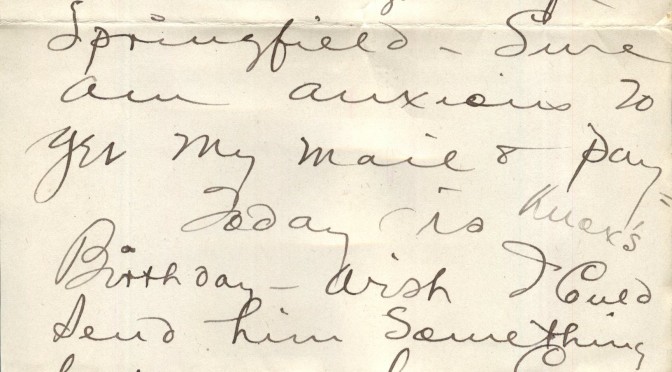 Springfield - Sure
am anxious to
get my mail & pay -
Today is Knox's
Birthday - wish I could
send him something